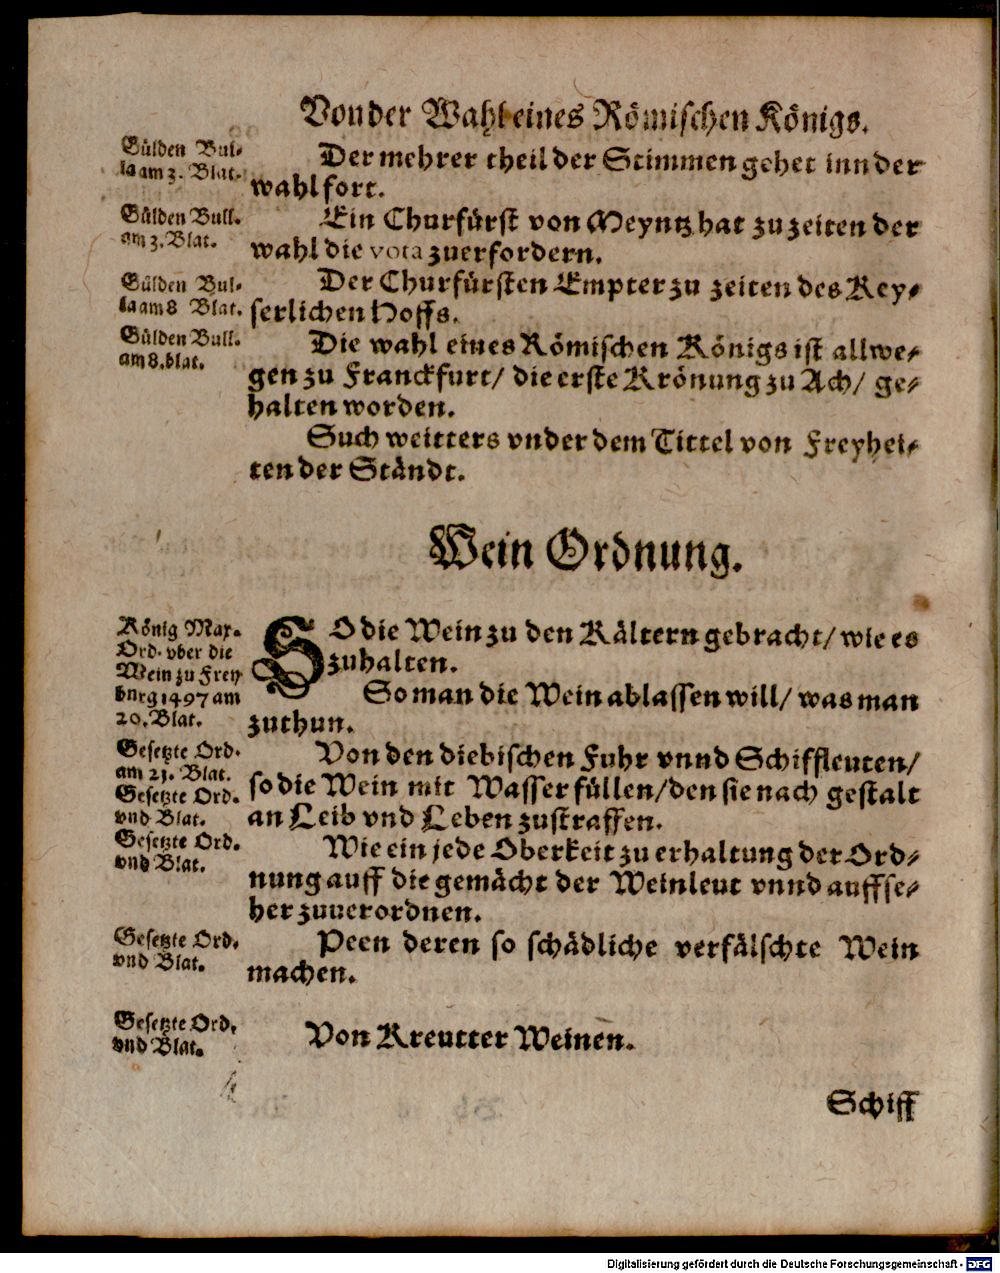 Von der Wahl eines Römischen Königs.
Gülden Bul-
la am 3. Blat.
Der mehrer theil der Stimmen gehet inn der
wahl fort.
Gülden Bull.
am 3. Blat.
Ein Churfürst von Meyntz hat zu zeiten der
wahl die vota zuerfordern.
Gülden Bul-
la am 8 Blat.
Der Churfürsten Empter zu zeiten des Key-
serlichen Hoffs.
Gülden Bull.
am 8. blat.
Die wahl eines Römischen Königs ist allwe-
gen zu Franckfurt/ die erste Krönung zu Ach/ ge-
halten worden.
Such weitters vnder dem Tittel von Freyhei-
ten der Ständt.
Wein Ordnung.
König Max.
Ord. vber die
Wein zu Frey
burg 1497 am
20. Blat.
SO die Wein zu den Kältern gebracht/ wie es
zuhalten.
So man die Wein ablassen will/ was man
zuthun.
Gesetzte Ord.
am 21. Blat.
Gesetzte Ord.
vnd Blat.
Von den diebischen Fuhr vnnd Schiffleuten/
so die Wein mit Wasser füllen/ den sie nach gestalt
an Leib vnd Leben zustraffen.
Gesetzte Ord.
vnd Blat.
Wie ein jede Oberkeit zu erhaltung der Ord-
nung auff die gemächt der Weinleut vnnd auffse-
her zuuerordnen.
Gesetzte Ord.
vnd Blat.
Peen deren so schädliche verfälschte Wein
machen.
Gesetzte Ord.
vnd Blat.
Von Kreutter Weinen.
Schiff
Digitalisierung gefördert durch die Deutsche Forschungsgemeinschaft - DFG